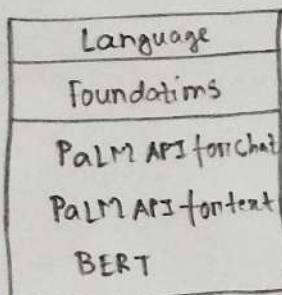 Language
Foundatims
PaLM API for chat
PaLM API for text
BERT